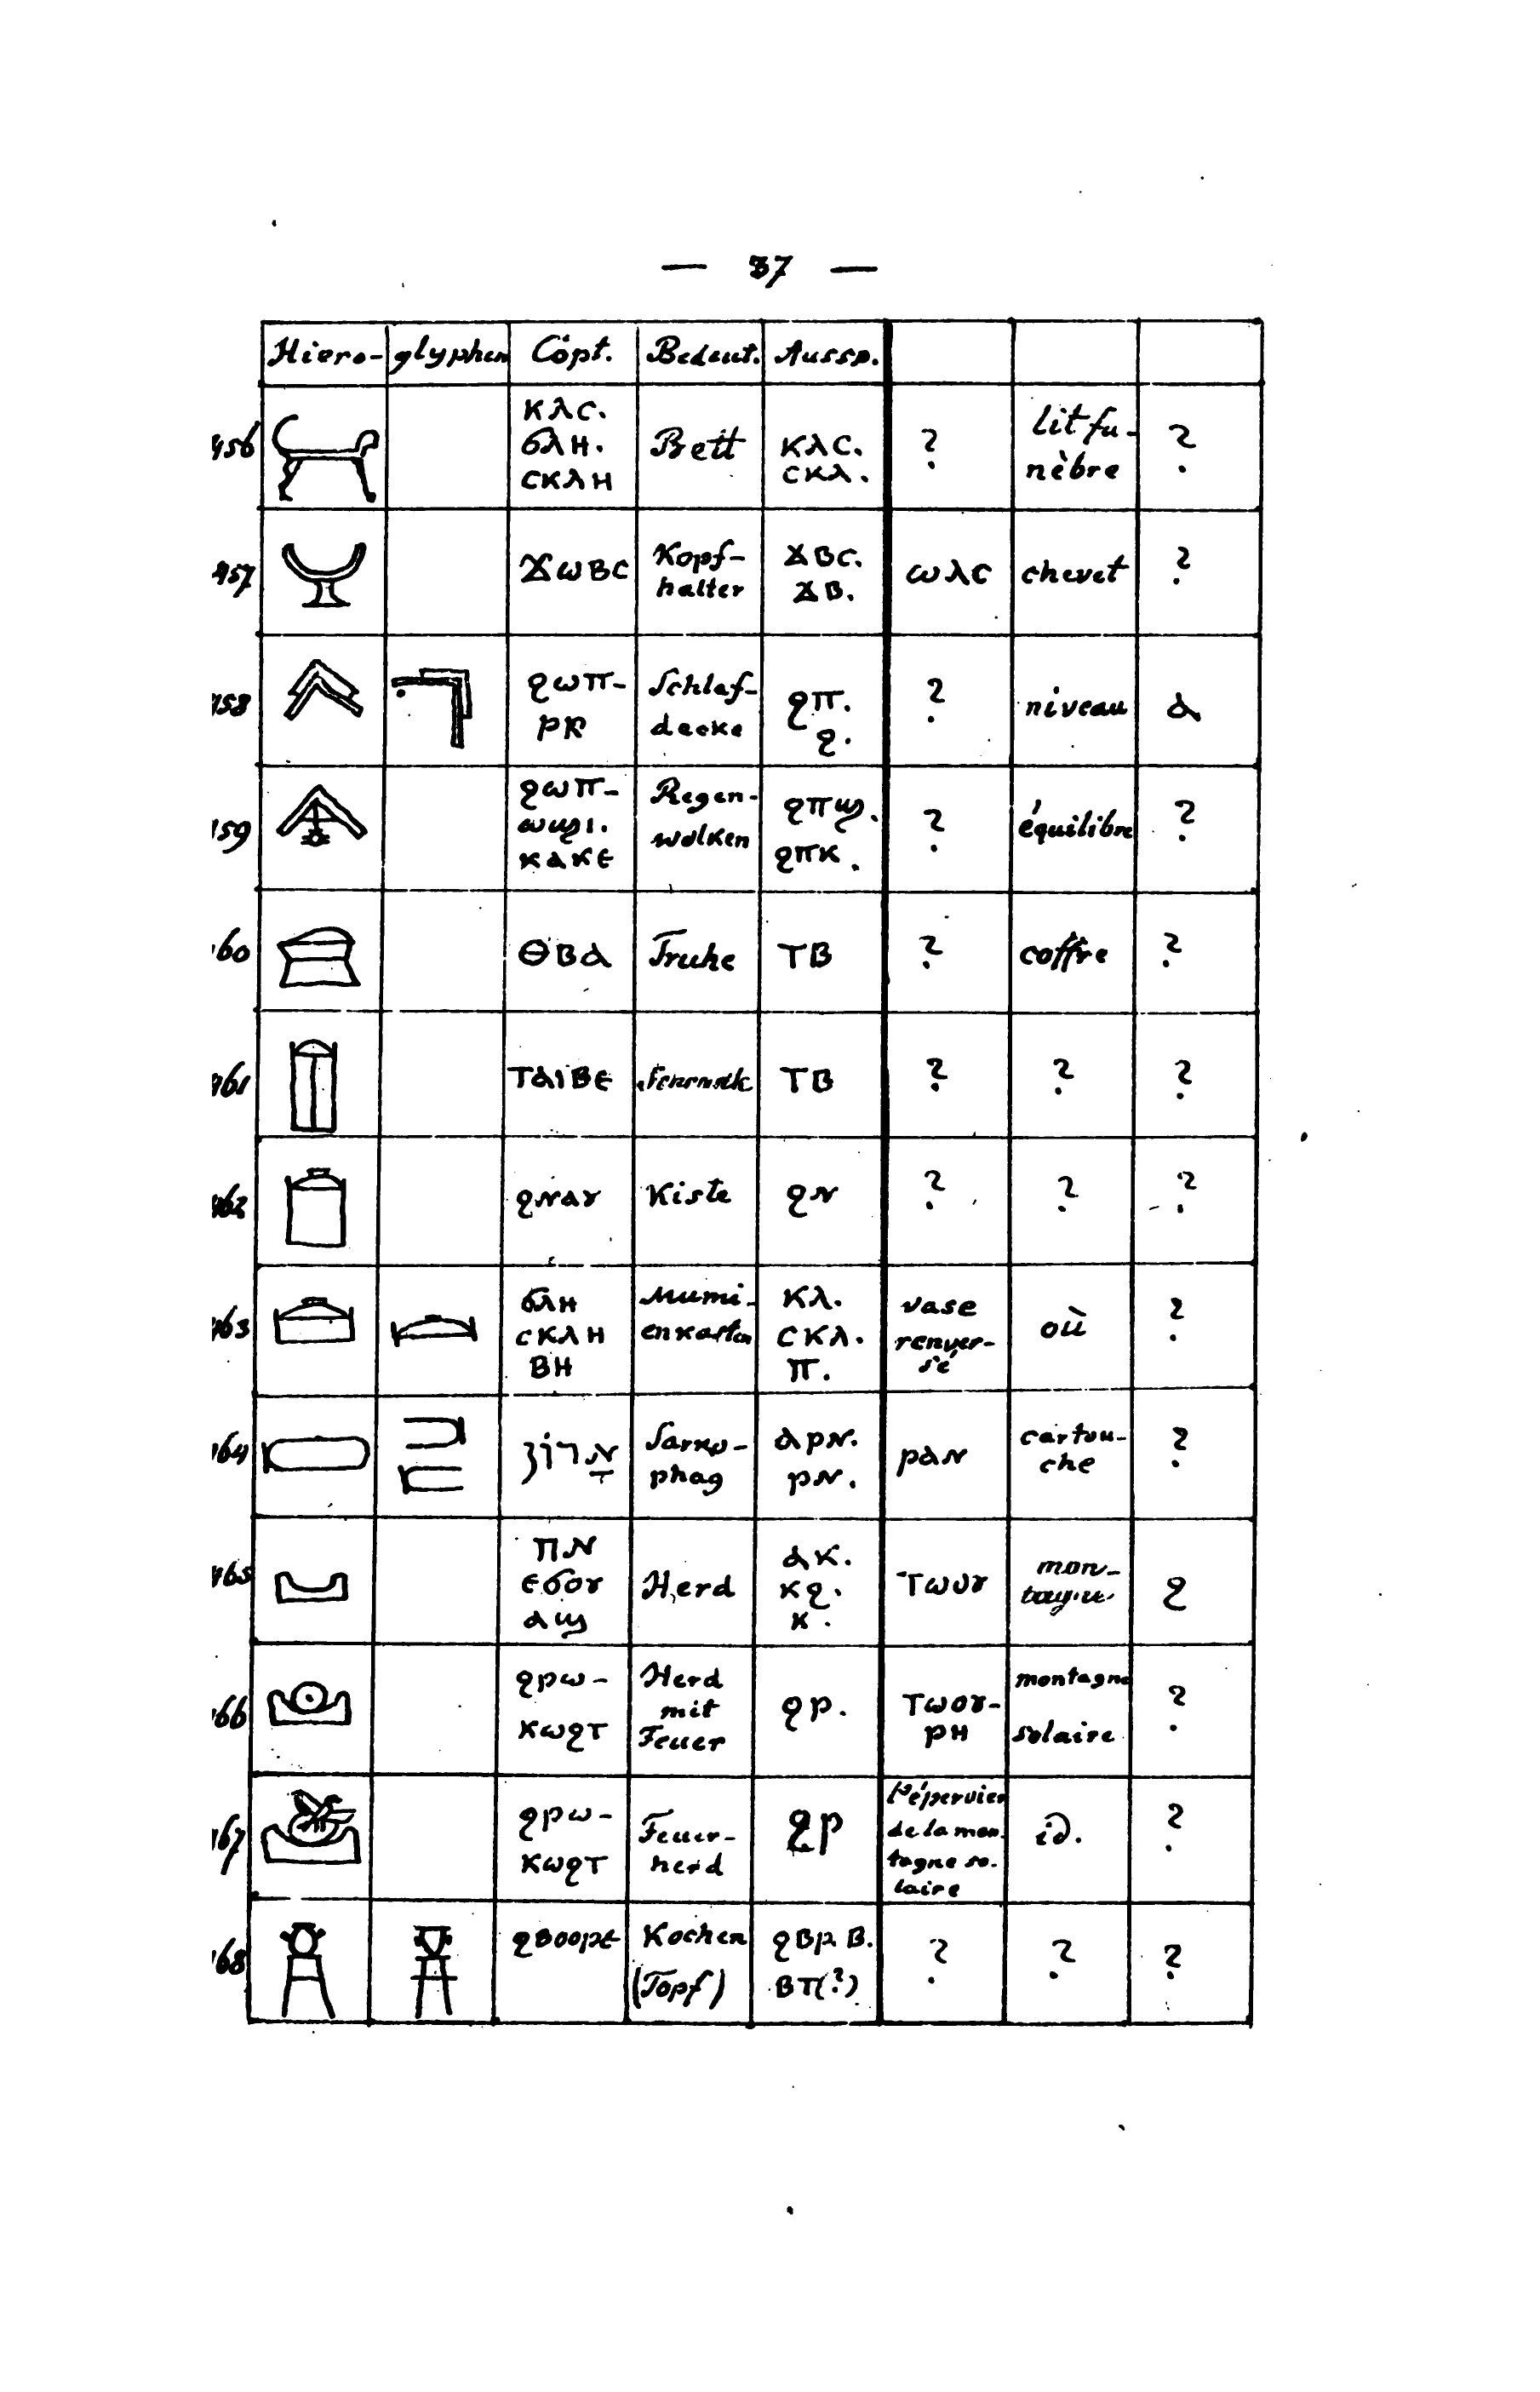 — 37 —
Hiero- glyphen Copt. Bedeut. Aussp.
456 ⲕⲗⲥ. ϭⲗⲏ. ⲥⲕⲗⲏ Bett ⲕⲗⲥ. ⲥⲕⲗ. ? lit fu- nèbre ?
457 ϫⲱⲃⲥ Kopf- halter ϫⲃⲥ. ϫⲃ. ⲱⲗⲥ chevet ?
458 ϩⲱⲡ- ⲣⲕ Schlaf- decke ϩⲡ. ϩ. ? niveau ⲁ
459 ϩⲱⲡ- ⲱϣⲓ. ⲕⲁⲕⲉ Regen- wolken ϩⲡϣ. ϩⲡⲕ. ? équilibre ?
460 ⲑⲃⲁ Truhe ⲧⲃ ? coffre ?
461 ⲧⲁⲓⲃⲉ ⲧⲃ ? ? ?
462 ϩⲛⲁⲩ Kiste ϩⲛ ? ? ?
463 ϭⲗⲏ ⲥⲕⲗⲏ ⲃⲏ Mumi- enkasten ⲕⲗ. ⲥⲕⲗ. ⲡ. vase renver- sé où ?
464 אָרוֹן Sarko- phag ⲁⲣⲛ. ⲣⲛ. ⲣⲁⲛ cartou- che ?
465 ⲡⲛ ⲉϭⲟⲩ ⲁϣ Herd ⲁⲕ. ⲕϩ. ⲕ. ⲧⲱⲟⲩ mon- tagne ϩ
466 ϩⲣⲱ- ⲕⲱϩⲧ Herd mit Feuer ϩⲣ. ⲧⲱⲟⲩ- ⲣⲏ montagne solaire ?
467 ϩⲣⲱ- ⲕⲱϩⲧ Feuer- herd ϩⲣ l'épervier de la mon- tagne so- laire id. ?
468 ϩⲃⲟⲟⲣⲉ Kochen (Topf) ϩⲃⲣ. ⲃ. ⲃⲧ(?) ? ? ?